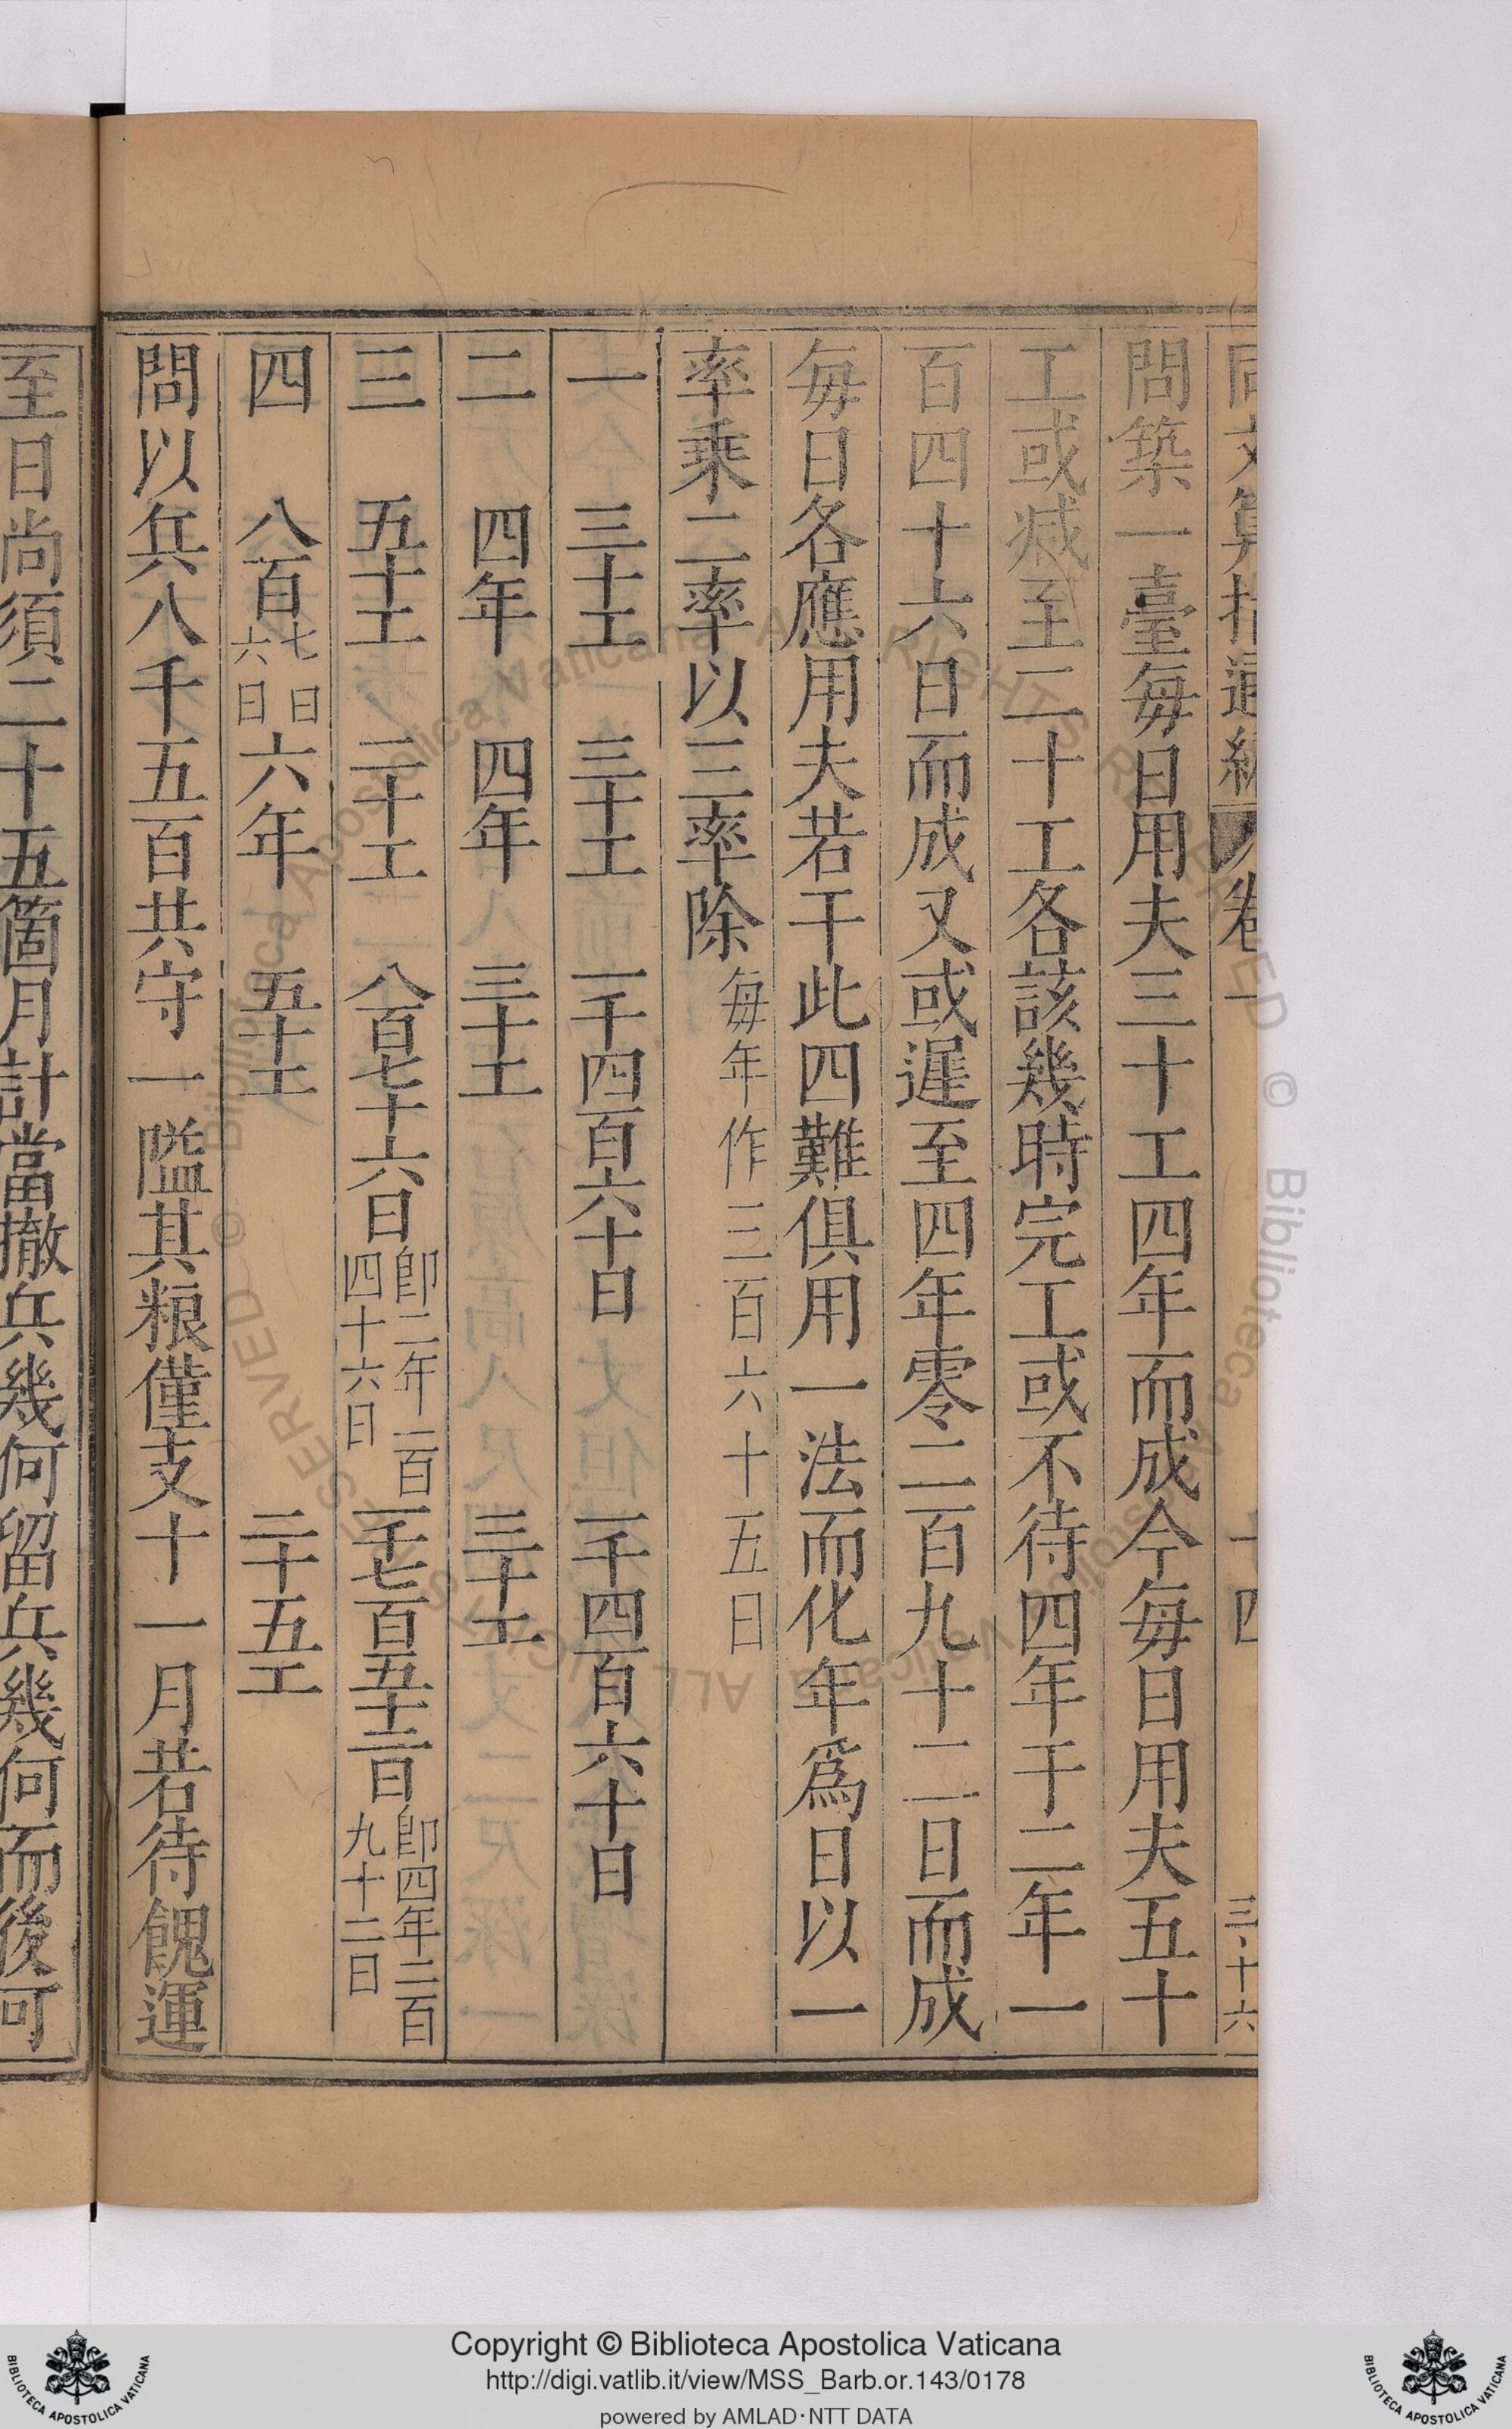 同文算指通編 卷一 十四 三十六
問築一臺每日用夫三十工四年而成今每日用夫五十
工或减至二十工各該幾時完工或不待四年于二年一
百四十六日而成又或遲至四年零二百九十二日而成
每日各應用夫若干此四難俱用一法而化年爲日以一
率乘二率以三率除 每年作三百六十五日
一 三十工 三十工 一千四百六十日 一千四百六十日
二 四年 四年 三十工 三十工
三 五十工 二十工 八百七十六日 卽二年一百四十六日 一千七百五十二日 卽四年二百九十二日
四 八百七日六日 六年 五十工 二十五工
問以兵八千五百共守一隘其粮僅支十一月若待餽運
至日尚須二十五箇月計當撤兵幾何留兵幾何而後可
© Biblioteca Apostolica Vaticana ALL RIGHTS RESERVED
Copyright © Biblioteca Apostolica Vaticana
http://digi.vatlib.it/view/MSS_Barb.or.143/0178
powered by AMLAD·NTT DATA
BIBLIOTECA APOSTOLICA VATICANA
BIBLIOTECA APOSTOLICA VATICANA